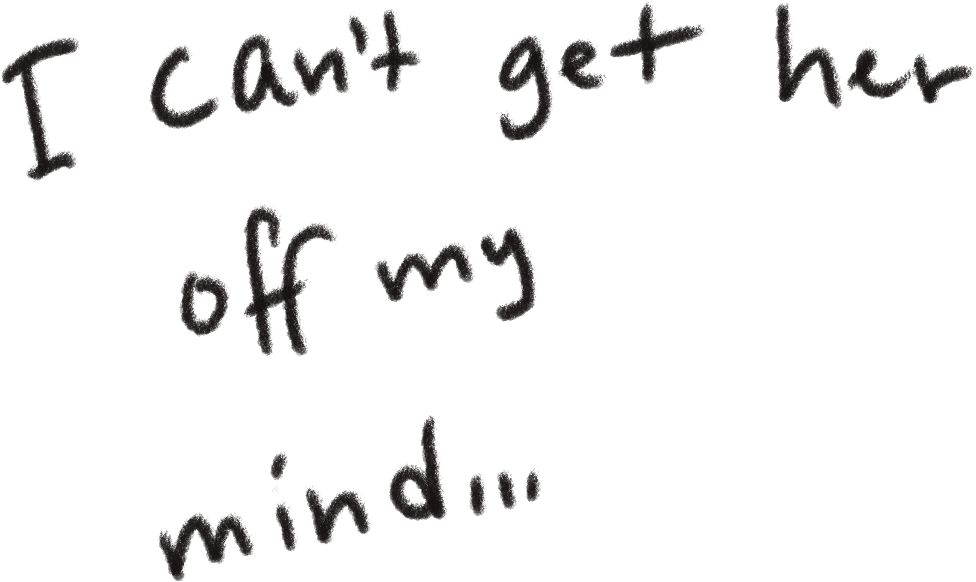 I can't get her
off my
mind...